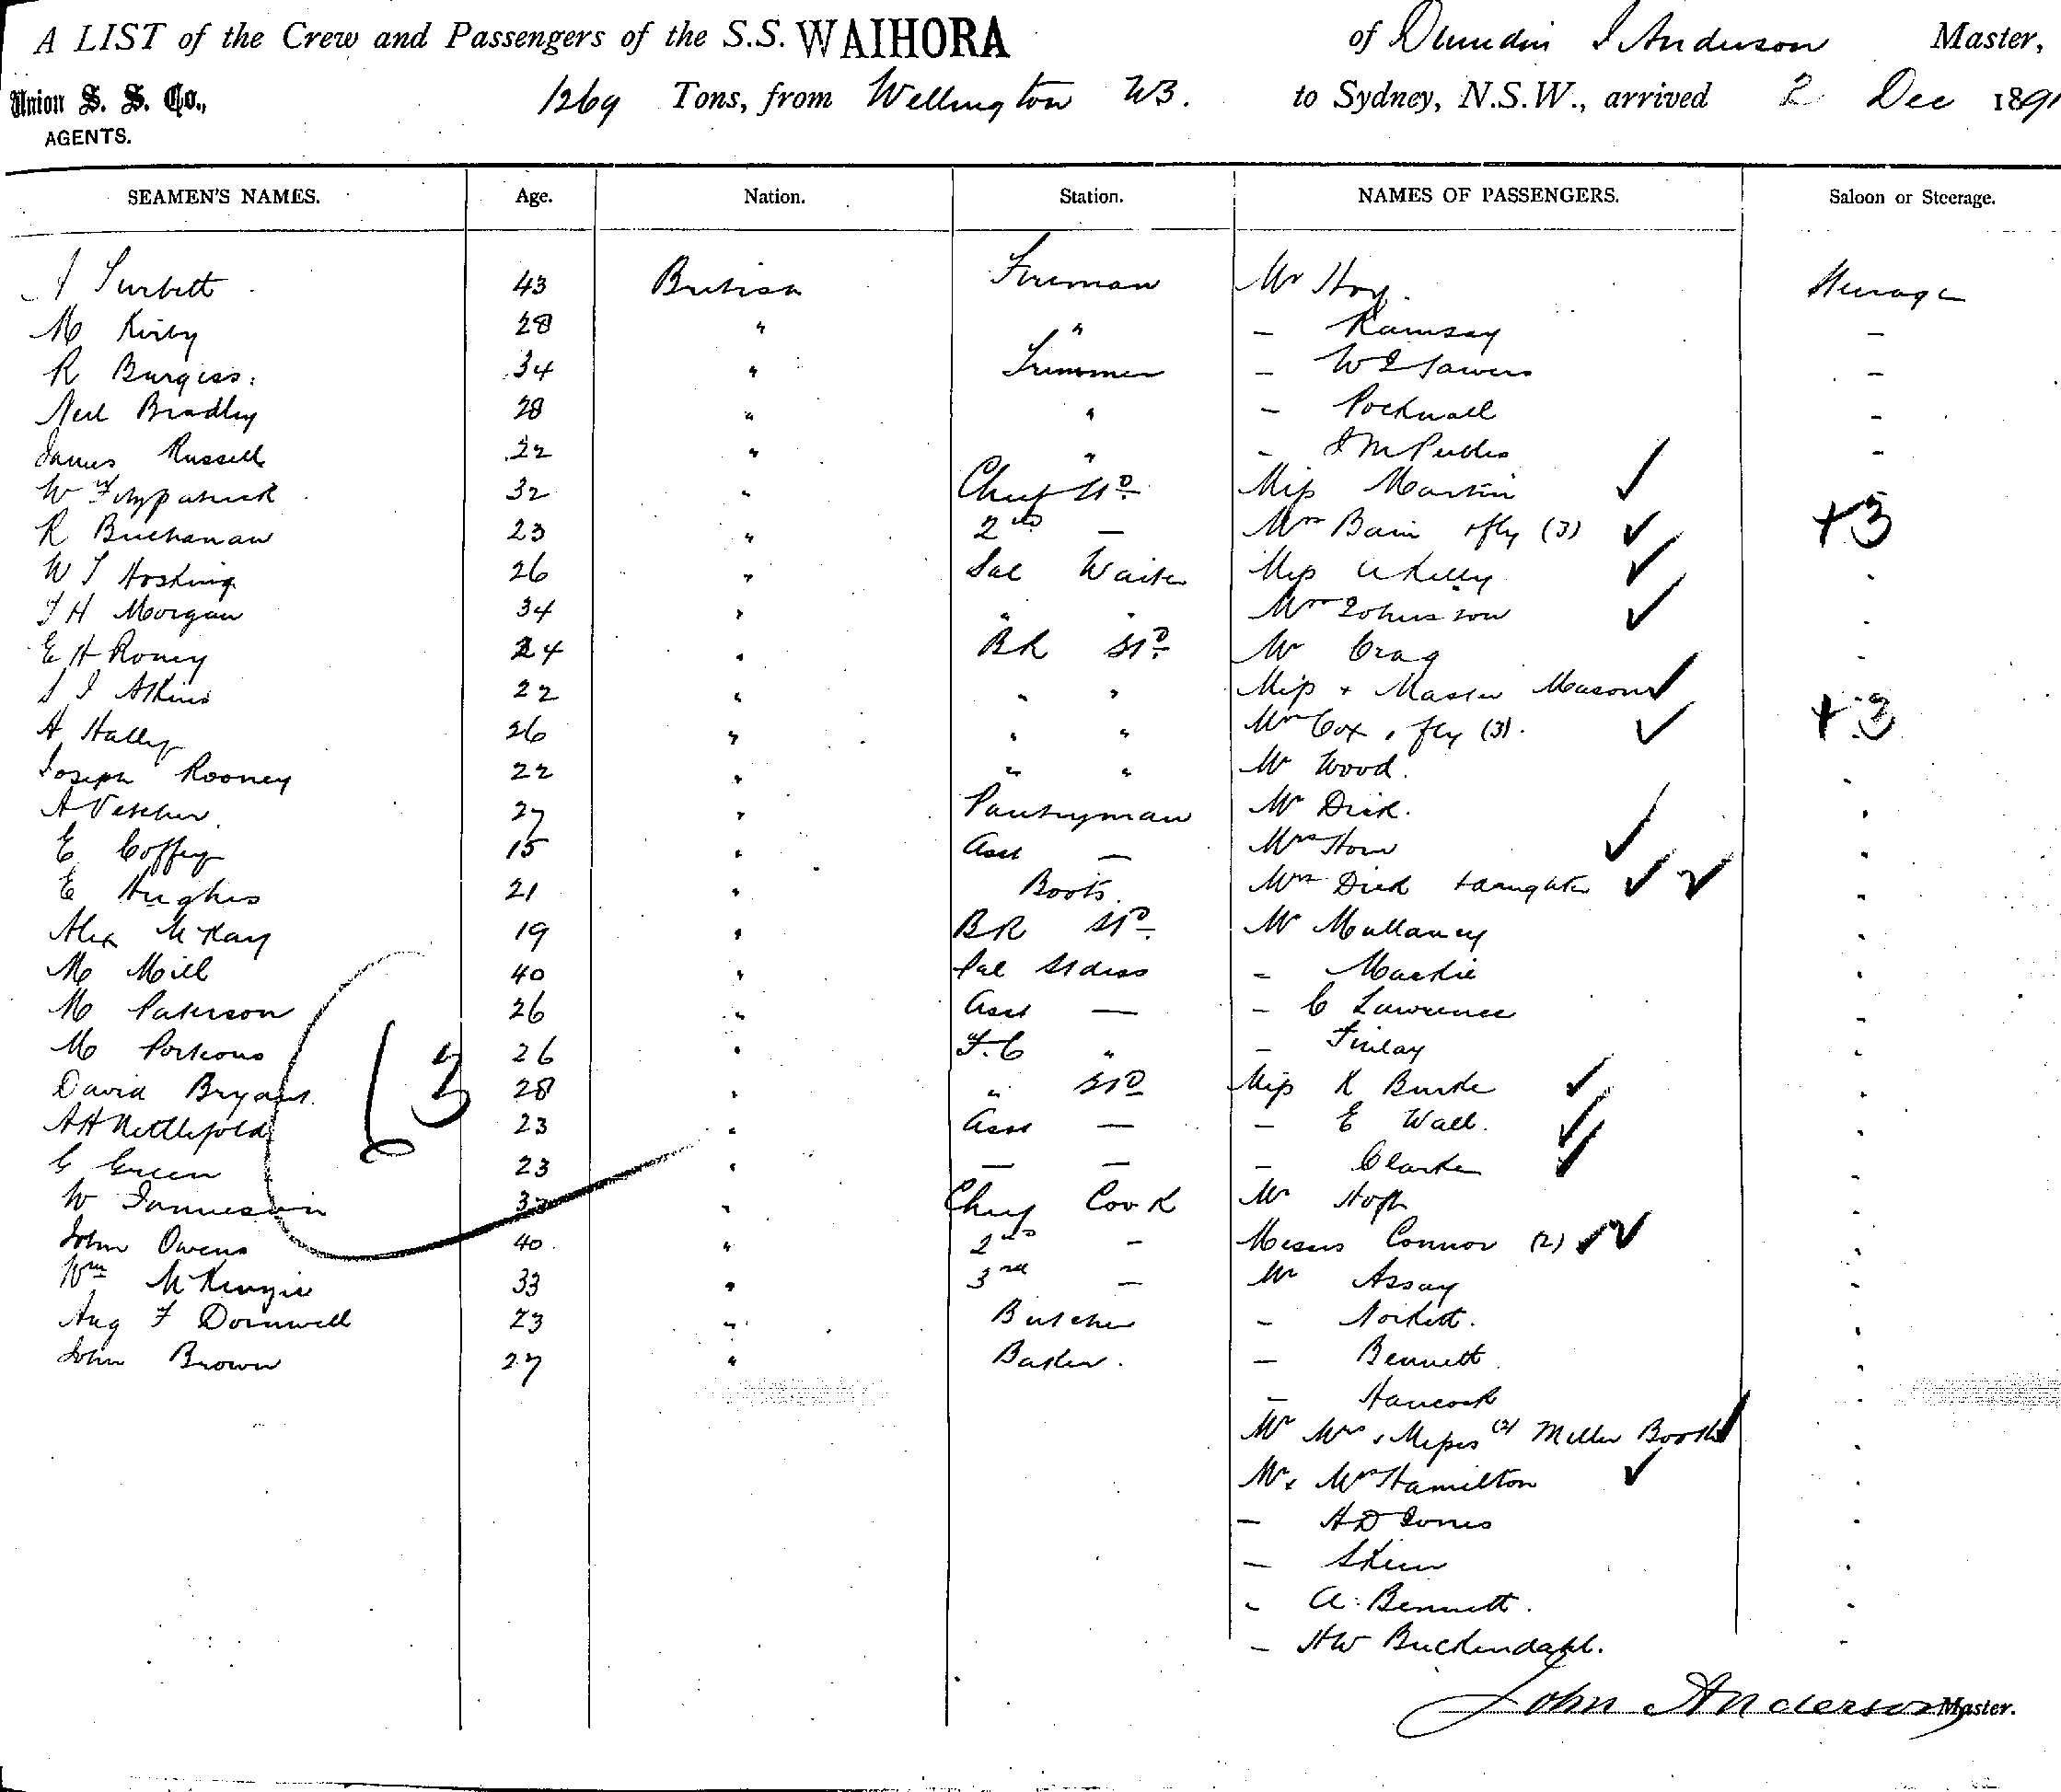 A LIST of the Crew and Passengers of the S.S. WAIHORA of Dunedin J Anderson Master,
Union S. S. Co., 1269 Tons, from Wellington to Sydney, N.S.W., arrived 2 Dec 1891
AGENTS.
SEAMEN'S NAMES. Age. Nation. Station. NAMES OF PASSENGERS. Saloon or Steerage.
Turbett 43 British Fireman Mr Hoy. Steerage
M Kirby 28 " " – Ramsay –
R Burgess 34 " Trimmer – W –
Neil Bradley 28 " " – Pocknall –
James Russell 22 " " – –
W Fitzpatrick 32 " Chief Std Miss Martin
R Buchanan 23 " 2nd – Mrs Bain & fly (3) +3
W T Hosking 26 " Sal Waiter Miss Kelly "
T H Morgan 34 " " " Mrs Johnston "
E H Roney 24 " BR Std Mr Crag "
S J Atkins 22 " " " Miss + Master Mason
A Hally 26 " " " Mrs Cox & fly (3). +3
Joseph Rooney 22 " " " Mr Wood. "
A 27 " Pantryman Mr Dick. "
E Coffey 15 " Asst – Mrs "
E Hughes 21 " Boots. Mrs Dick + daughter "
Alex McKay 19 " BR Std Mr Mullaney "
M Mill 40 " Sal Stdess – Mackie "
M Paterson 26 " Asst – – C Lawrence "
M Porteous 26 " F.C " – Finlay "
63
David Bryant. 28 " " Std Miss K Burke "
A H Nettlefold 23 " Asst – – E Wall. "
G Green 23 " – – – Clarke "
W Jamieson 33 " Chief Cook Mr "
John Owens 40 " 2nd – Messrs Connor (2) "
Wm McKenzie 33 " 3rd – Mr Assay "
Aug F Dornwell 23 " Butcher – "
John Brown 27 " Baker. – Bennett "
– Hancock "
Mr Mrs & Misses (2) Miller Booth "
Mr & Mrs Hamilton "
– H D Jones "
– Skene "
" A. Bennett. "
– H W Buckendahl. "
John Anderson Master.